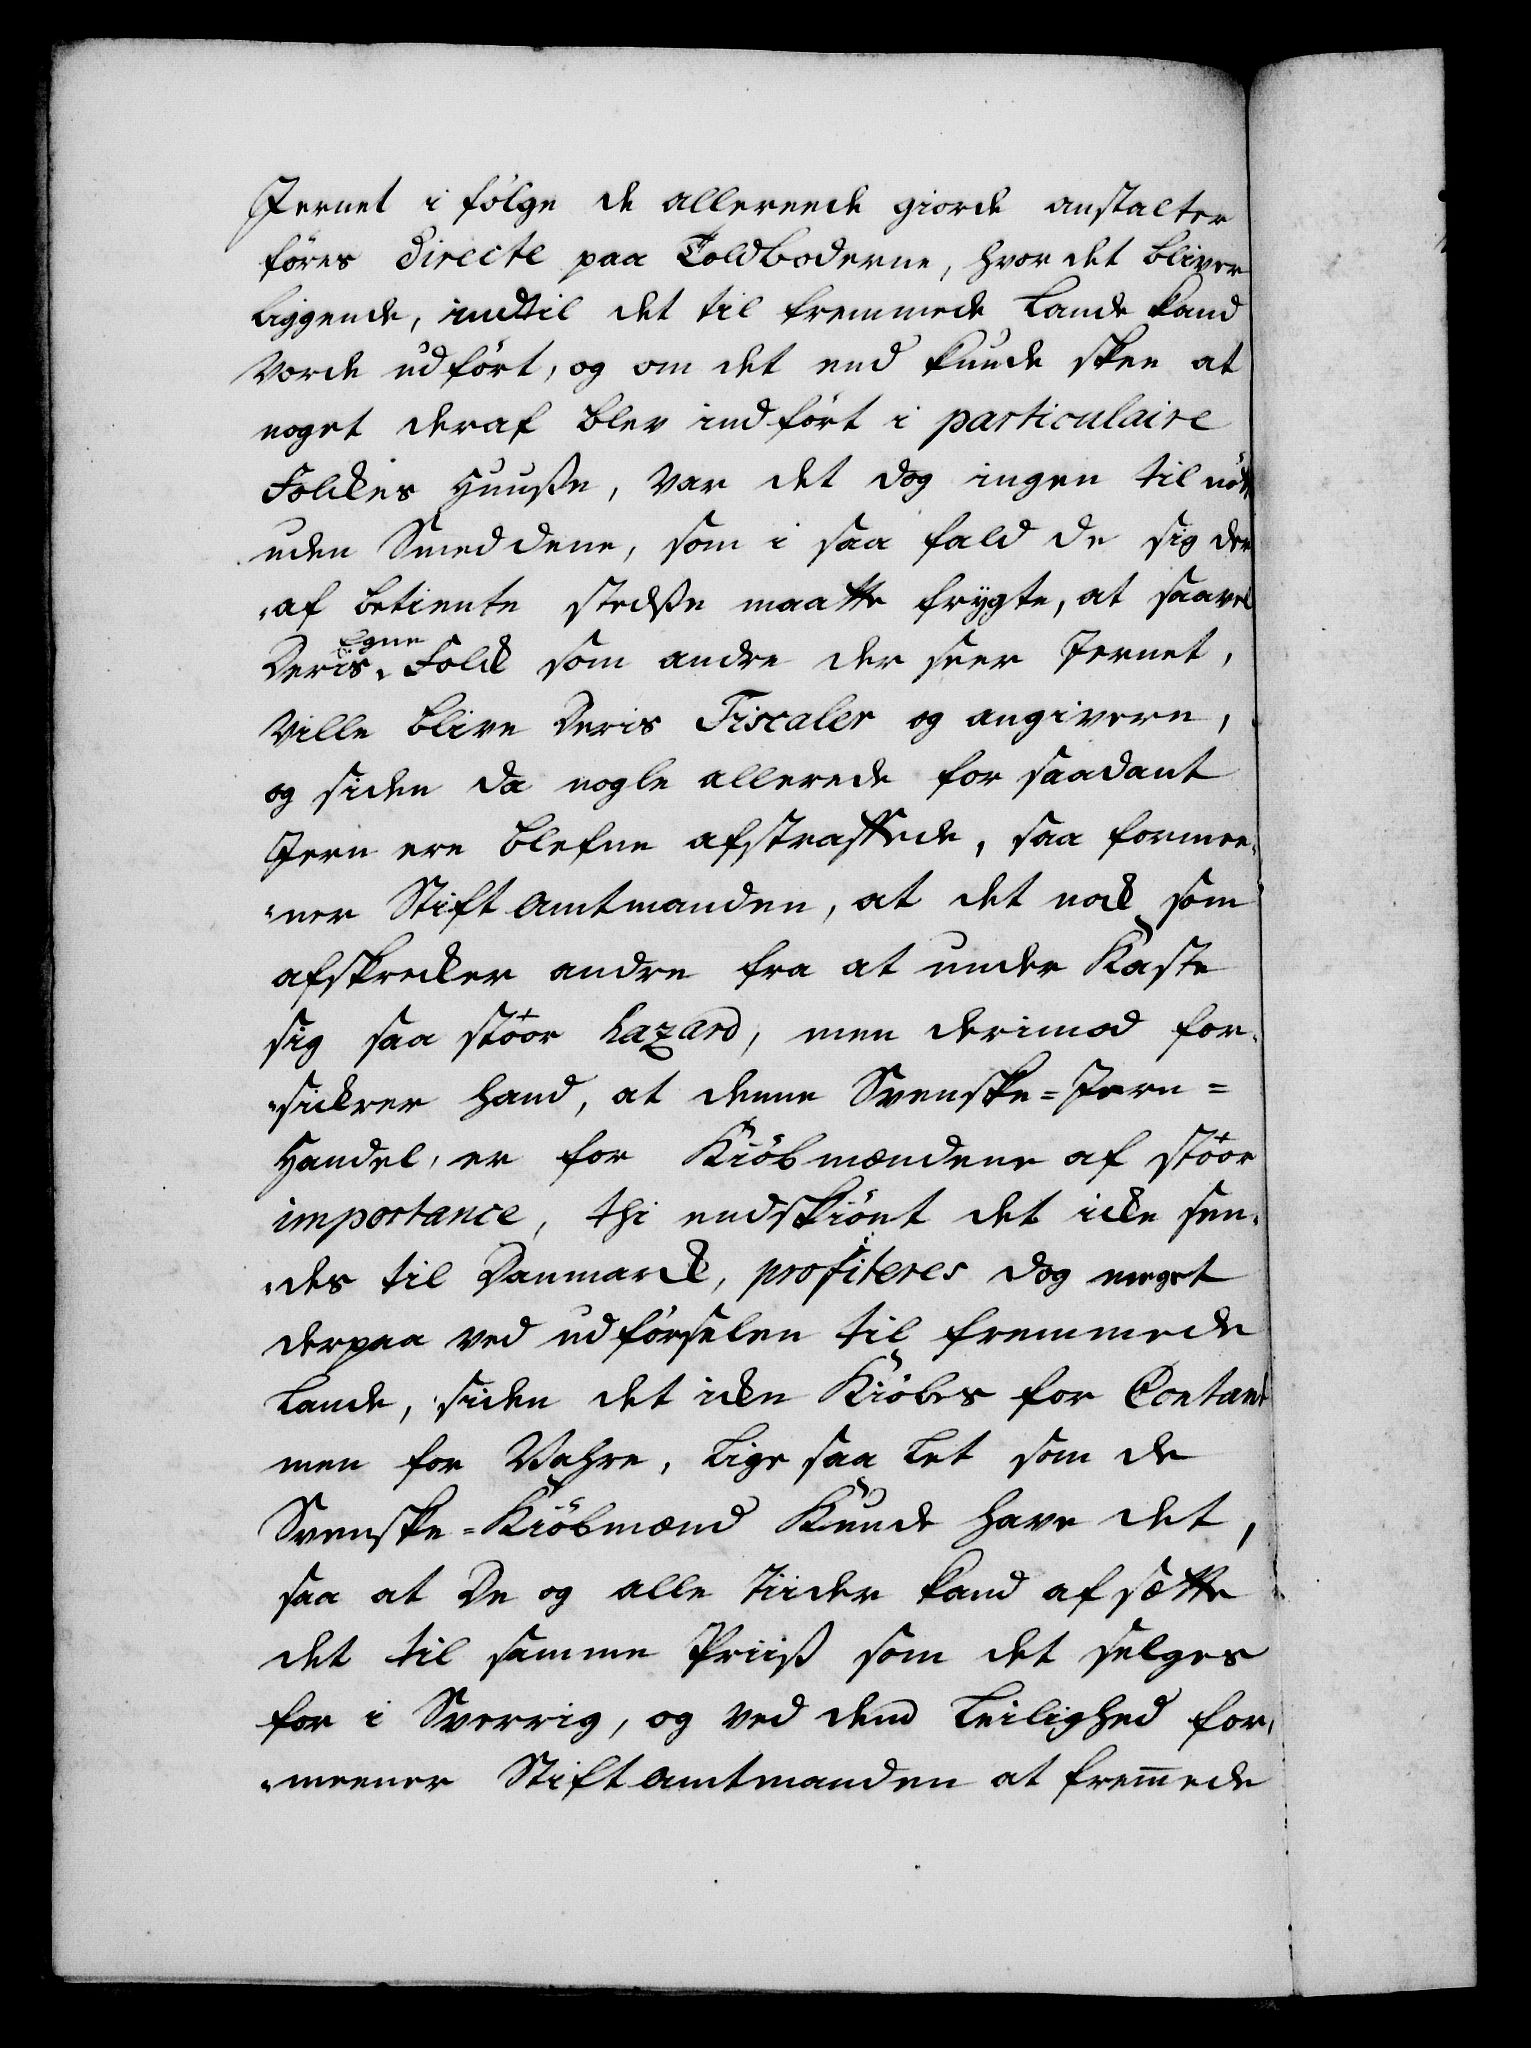 Jernet i fölge de allereede giorde anstalter
föres directe paa Toldboderne, hvor det bliver
liggende, indtil det til fremmede Lande kand
vorde udfört, og om det end kunde skee at
noget deraf blev indfört i particulaire
Folckes Huuße, var det dog ingen til nötte
uden Smeddene, som i saa fald de sig der
„af betiente stedße maatte frygte, at saavel
Deris Egne Folck som andre der seer Jernet,
ville blive Deris Fiscaler og angivere,
og siden da nogle allerede for saadant
Jern ere blefne afstraffede, saa formee„
„ner Stift Amtmanden, at det nock som
afskrecker andre fra at under Kaste
sig saa stöor hazard, men derimod for„
„sickrer hand, at denne Svenske=Jern=
Handel, er for Kiöbmændene af stöor
importance, thi endskiönt det icke sen„
„des til Danmarck, profiteres dog meget
derpaa ved udförselen til fremmede
Lande, siden det icke Kiöbes for Contant
men for Vahre, lige saa let som de
Svenske=Kiöbmænd Kunde have det,
saa at De og alle tiider kand afsætte
det til samme Priiß som det selges
for i Sverrig, og ved dend Leilighed for„
„meener Stift Amtmanden at fremede